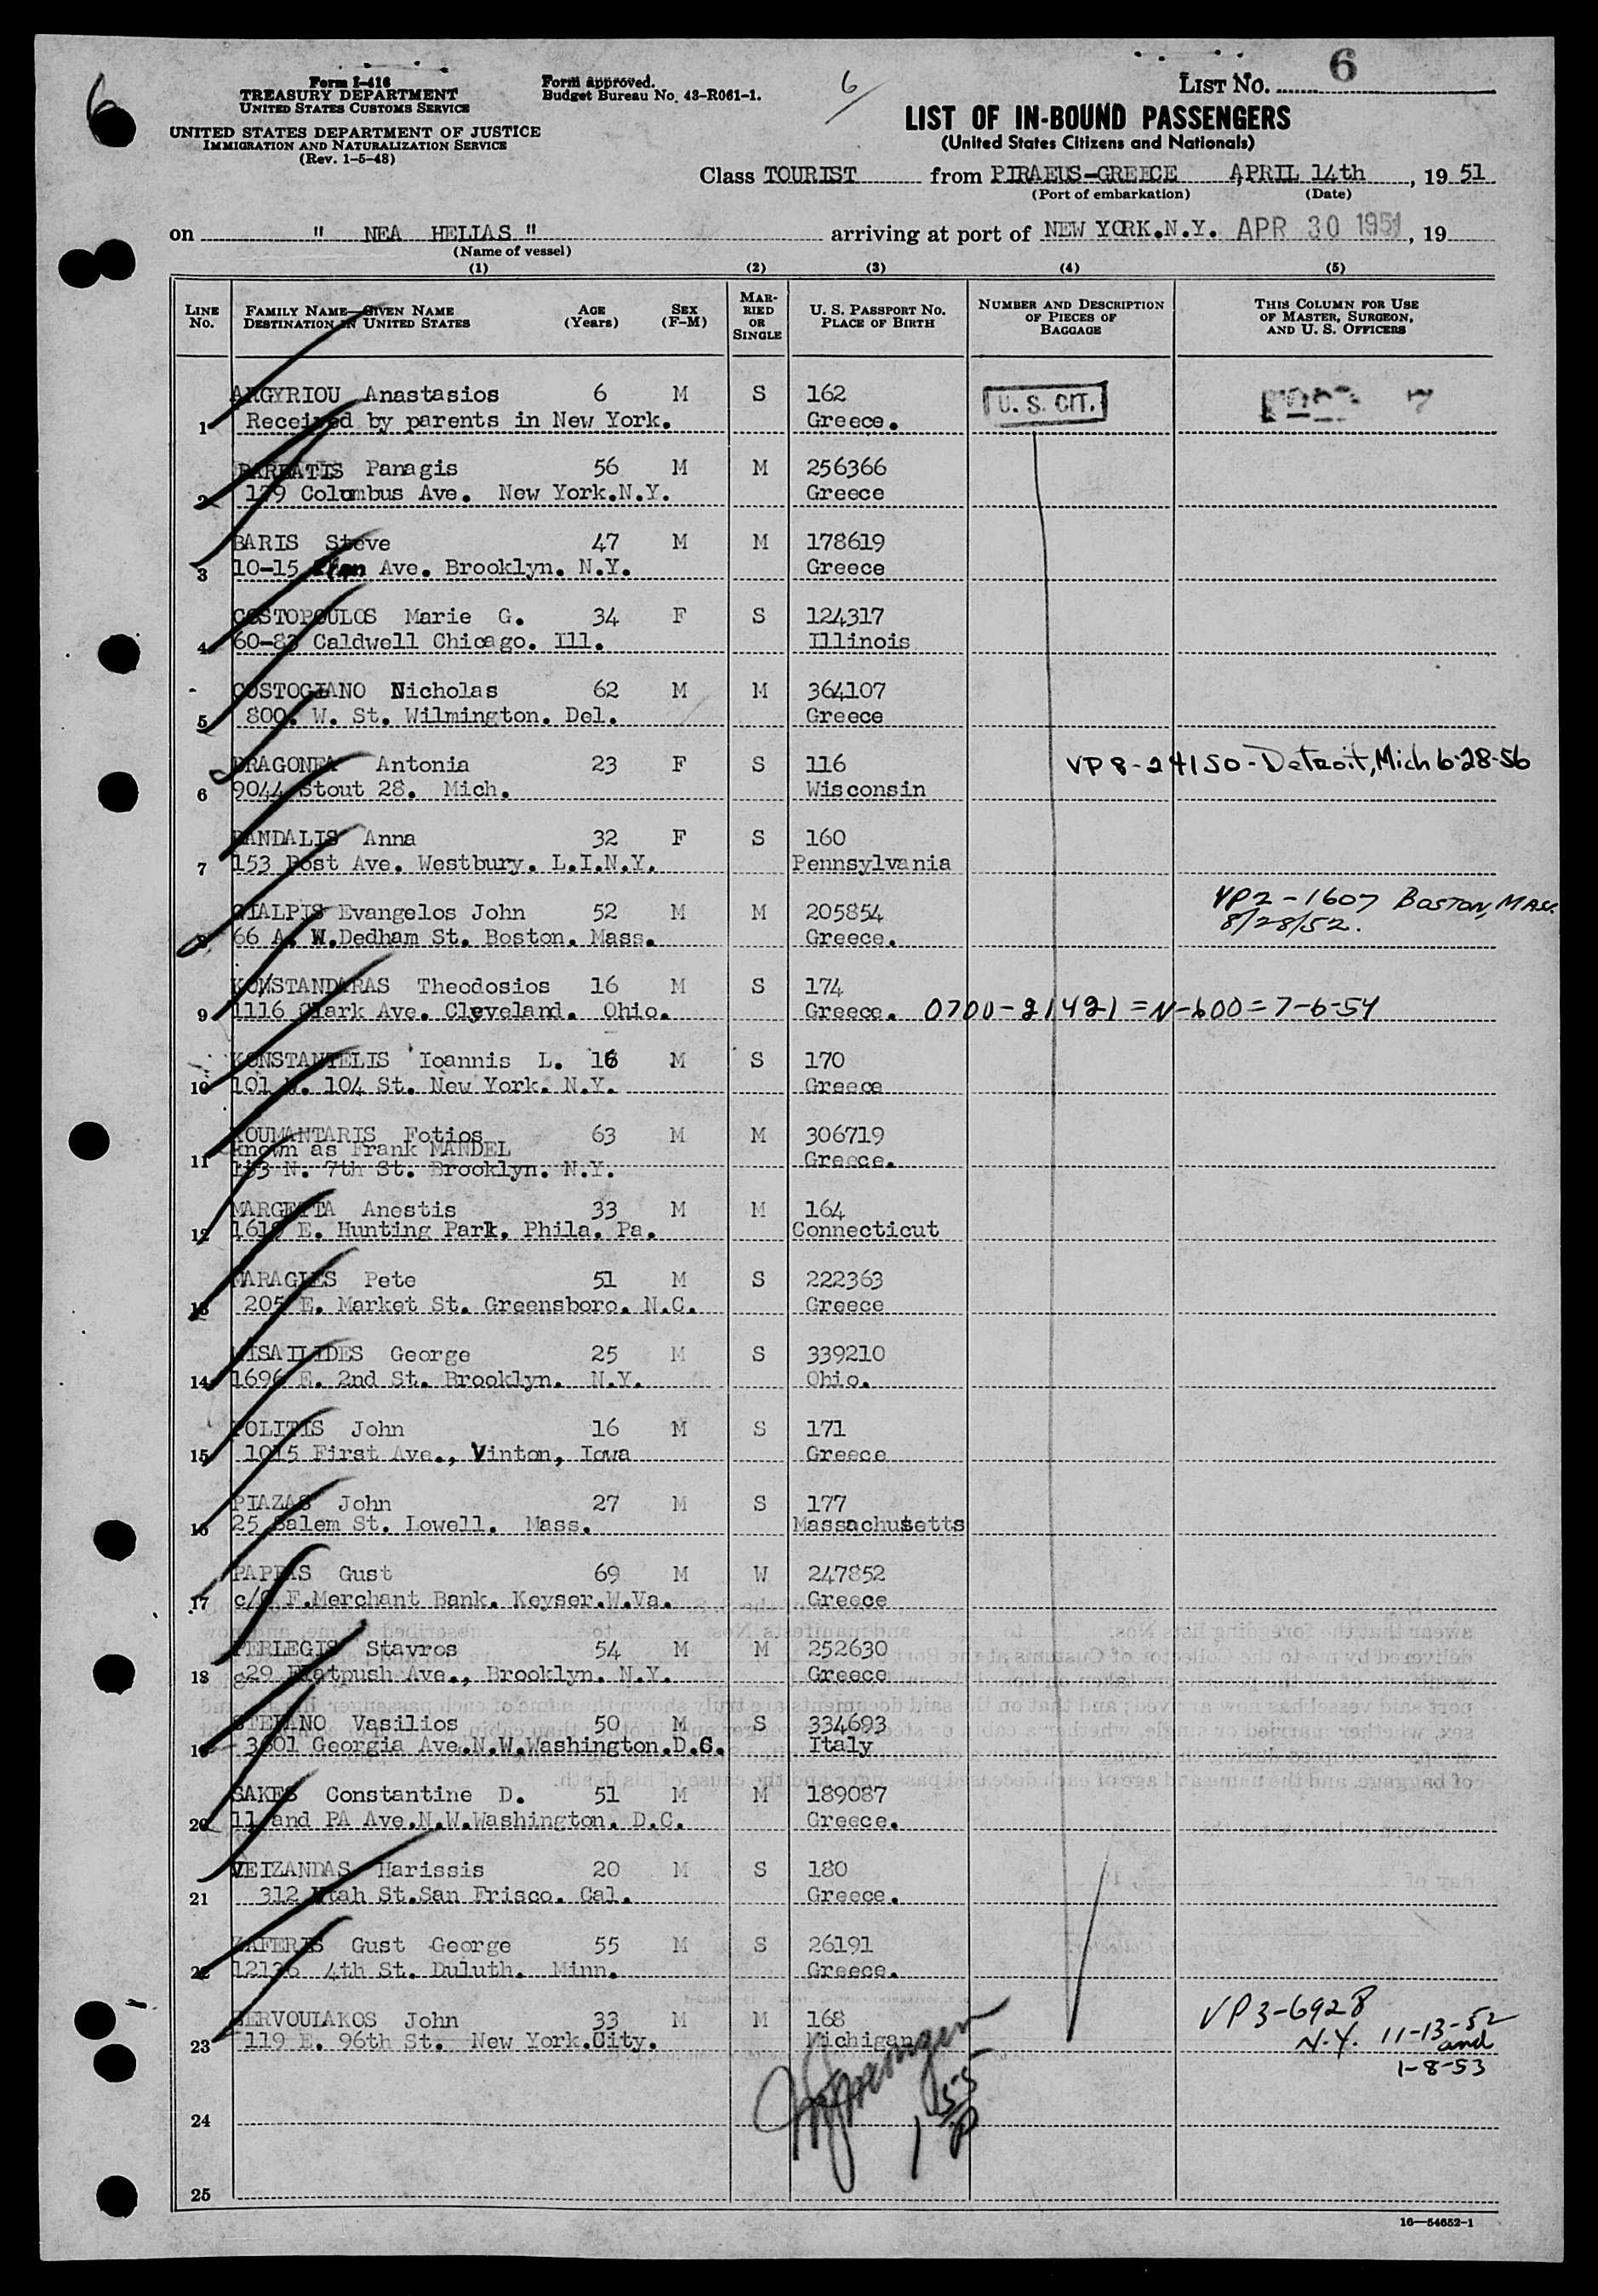 6
Form I-416
TREASURY DEPARTMENT
UNITED STATES CUSTOMS SERVICE
UNITED STATES DEPARTMENT OF JUSTICE
IMMIGRATION AND NATURALIZATION SERVICE
(Rev. 1-5-48)
Form approved.
Budget Bureau No. 43-R061-1.
6
LIST NO. 6
LIST OF IN-BOUND PASSENGERS
(United States Citizens and Nationals)
Class TOURIST from PIRAEUS-GREECE APRIL 14th, 19 51
(Port of embarkation) (Date)
on " NEA HELLAS " arriving at port of NEW YORK.N.Y. APR 30 1951, 19
(Name of vessel)
(1) (2) (3) (4) (5)
LINE NO. FAMILY NAME—GIVEN NAME DESTINATION IN UNITED STATES AGE (Years) SEX (F-M) MARRIED OR SINGLE U. S. PASSPORT NO. PLACE OF BIRTH NUMBER AND DESCRIPTION OF PIECES OF BAGGAGE THIS COLUMN FOR USE OF MASTER, SURGEON, AND U. S. OFFICERS
ARGYRIOU Anastasios 6 M S 162 U. S. CIT. 7
1 Received by parents in New York. Greece.
Panagis 56 M M 256366
2 179 Columbus Ave. New York.N.Y. Greece
BARIS Steve 47 M M 178619
3 10-15 Ave. Brooklyn. N.Y. Greece
COSTOPOULOS Marie G. 34 F S 124317
4 60-83 Caldwell Chicago. Ill. Illinois
COSTOGIANO Nicholas 62 M M 364107
5 800. W. St. Wilmington. Del. Greece
DRAGONEA Antonia 23 F S 116 VP8-24150-Detroit, Mich 6-28-56
6 9044 Stout 28. Mich. Wisconsin
DANDALIS Anna 32 F S 160
7 153 Post Ave. Westbury. L.I.N.Y. Pennsylvania
GIALPIS Evangelos John 52 M M 205854 VP2-1607 BOSTON, MASS.
8 66 A. W.Dedham St. Boston. Mass. Greece. 8/28/52.
KONSTANDARAS Theodosios 16 M S 174
9 1116 Clark Ave. Cleveland. Ohio. Greece. 0700-21421=N-600=7-6-54
KONSTANTELIS Ioannis L. 16 M S 170
10 101 W. 104 St. New York. N.Y. Greece
KOUMANTARIS Fotios 63 M M 306719
known as Frank MANDEL
11 153 N. 7th St. Brooklyn. N.Y. Greece.
MARGETTA Anestis 33 M M 164
12 1618 E. Hunting Park. Phila. Pa. Connecticut
MARAGLES Pete 51 M S 222363
13 205 E. Market St. Greensboro. N.C. Greece
MISAILIDES George 25 M S 339210
14 1696 E. 2nd St. Brooklyn. N.Y. Ohio.
POLITIS John 16 M S 171
15 1015 First Ave., Vinton, Iowa Greece
PIAZAS John 27 M S 177
16 25 Salem St. Lowell. Mass. Massachusetts
PAPPAS Gust 69 M W 247852
17 c/O F.Merchant Bank. Keyser.W.Va. Greece
PERLEGIS Stavros 54 M M 252630
18 829 Flatpush Ave., Brooklyn. N.Y. Greece
STEFANO Vasilios 50 M S 334693
19 3601 Georgia Ave.N.W.Washington.D.C. Italy
SAKES Constantine D. 51 M M 189087
20 11 and PA Ave.N.W.Washington. D.C. Greece.
VEIZANDAS Harissis 20 M S 180
21 312 Utah St.San Frisco. Cal. Greece.
ZAFERIS Gust George 55 M S 26191
22 12136 4th St. Duluth. Minn. Greece.
ZERVOULAKOS John 33 M M 168 VP3-6928
23 119 E. 96th St. New York.City. Michigan N.Y. 11-13-52
and
1-8-53
24
25
16—54652-1